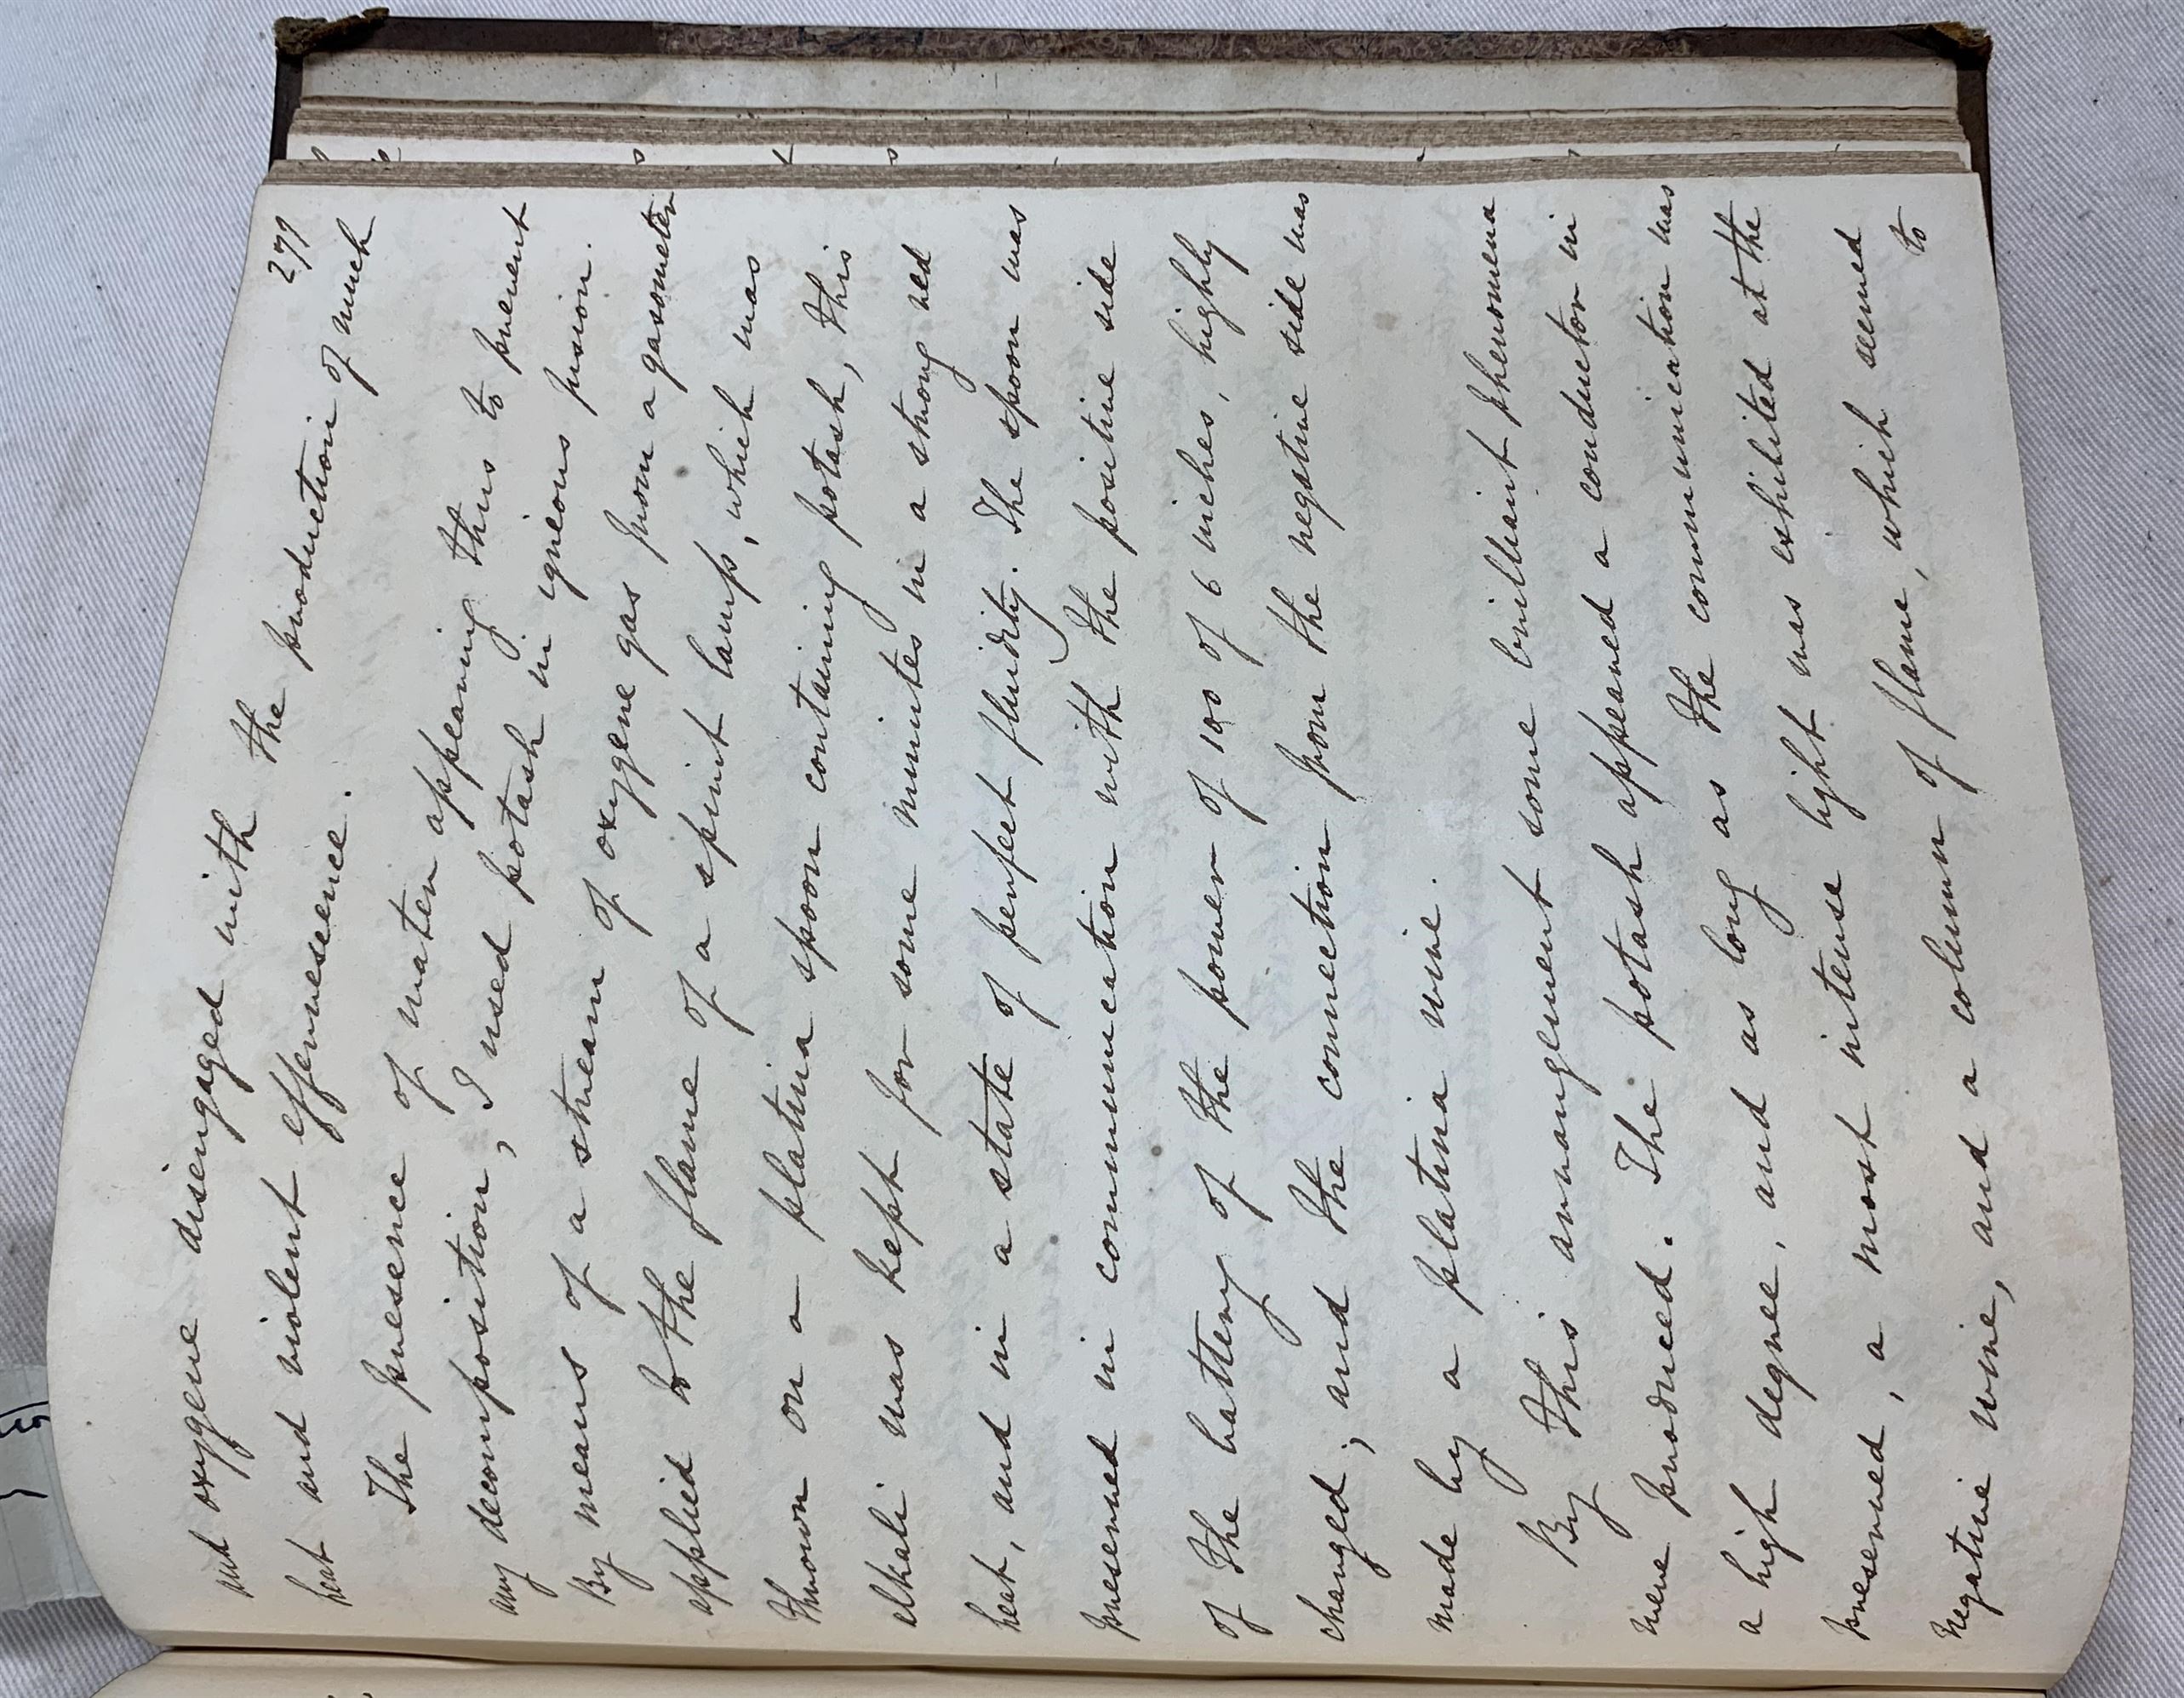 279
and oxygene disengaged with the production of much
heat and violent effervescence.
The presence of water appearing thus to prevent
any decomposition, I used potash in igneous fusion.
By means of a stream of oxygene gas from a gasometer
applied to the flame of a spirit lamp, which was
thrown on a platina spoon containing potash, this
alkali was kept for some minutes in a strong red
heat, and in a state of perfect fluidity. The spoon was
preserved in communication with the positive side
of the battery of the power of 100 of 6 inches, highly
changed; and the connection from the negative side was
made by a platina wire.
By this arrangement some brilliant phenomena
were produced. The potash appeared a conductor in
a high degree, and as long as the communication was
preserved, a most intense light was exhibited at the
negative wire, and a column of flame, which seemed
to